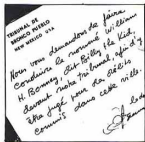 TRIBUNAL DE
BRONCO PUEBLO
NEW MEXICO USA
Nous vous demandons de faire
conduire le nommé William
H. Bonney, dit Billy the Kid,
devant notre tribunal afin d'y
être jugé pour des délits
commis dans cette ville.